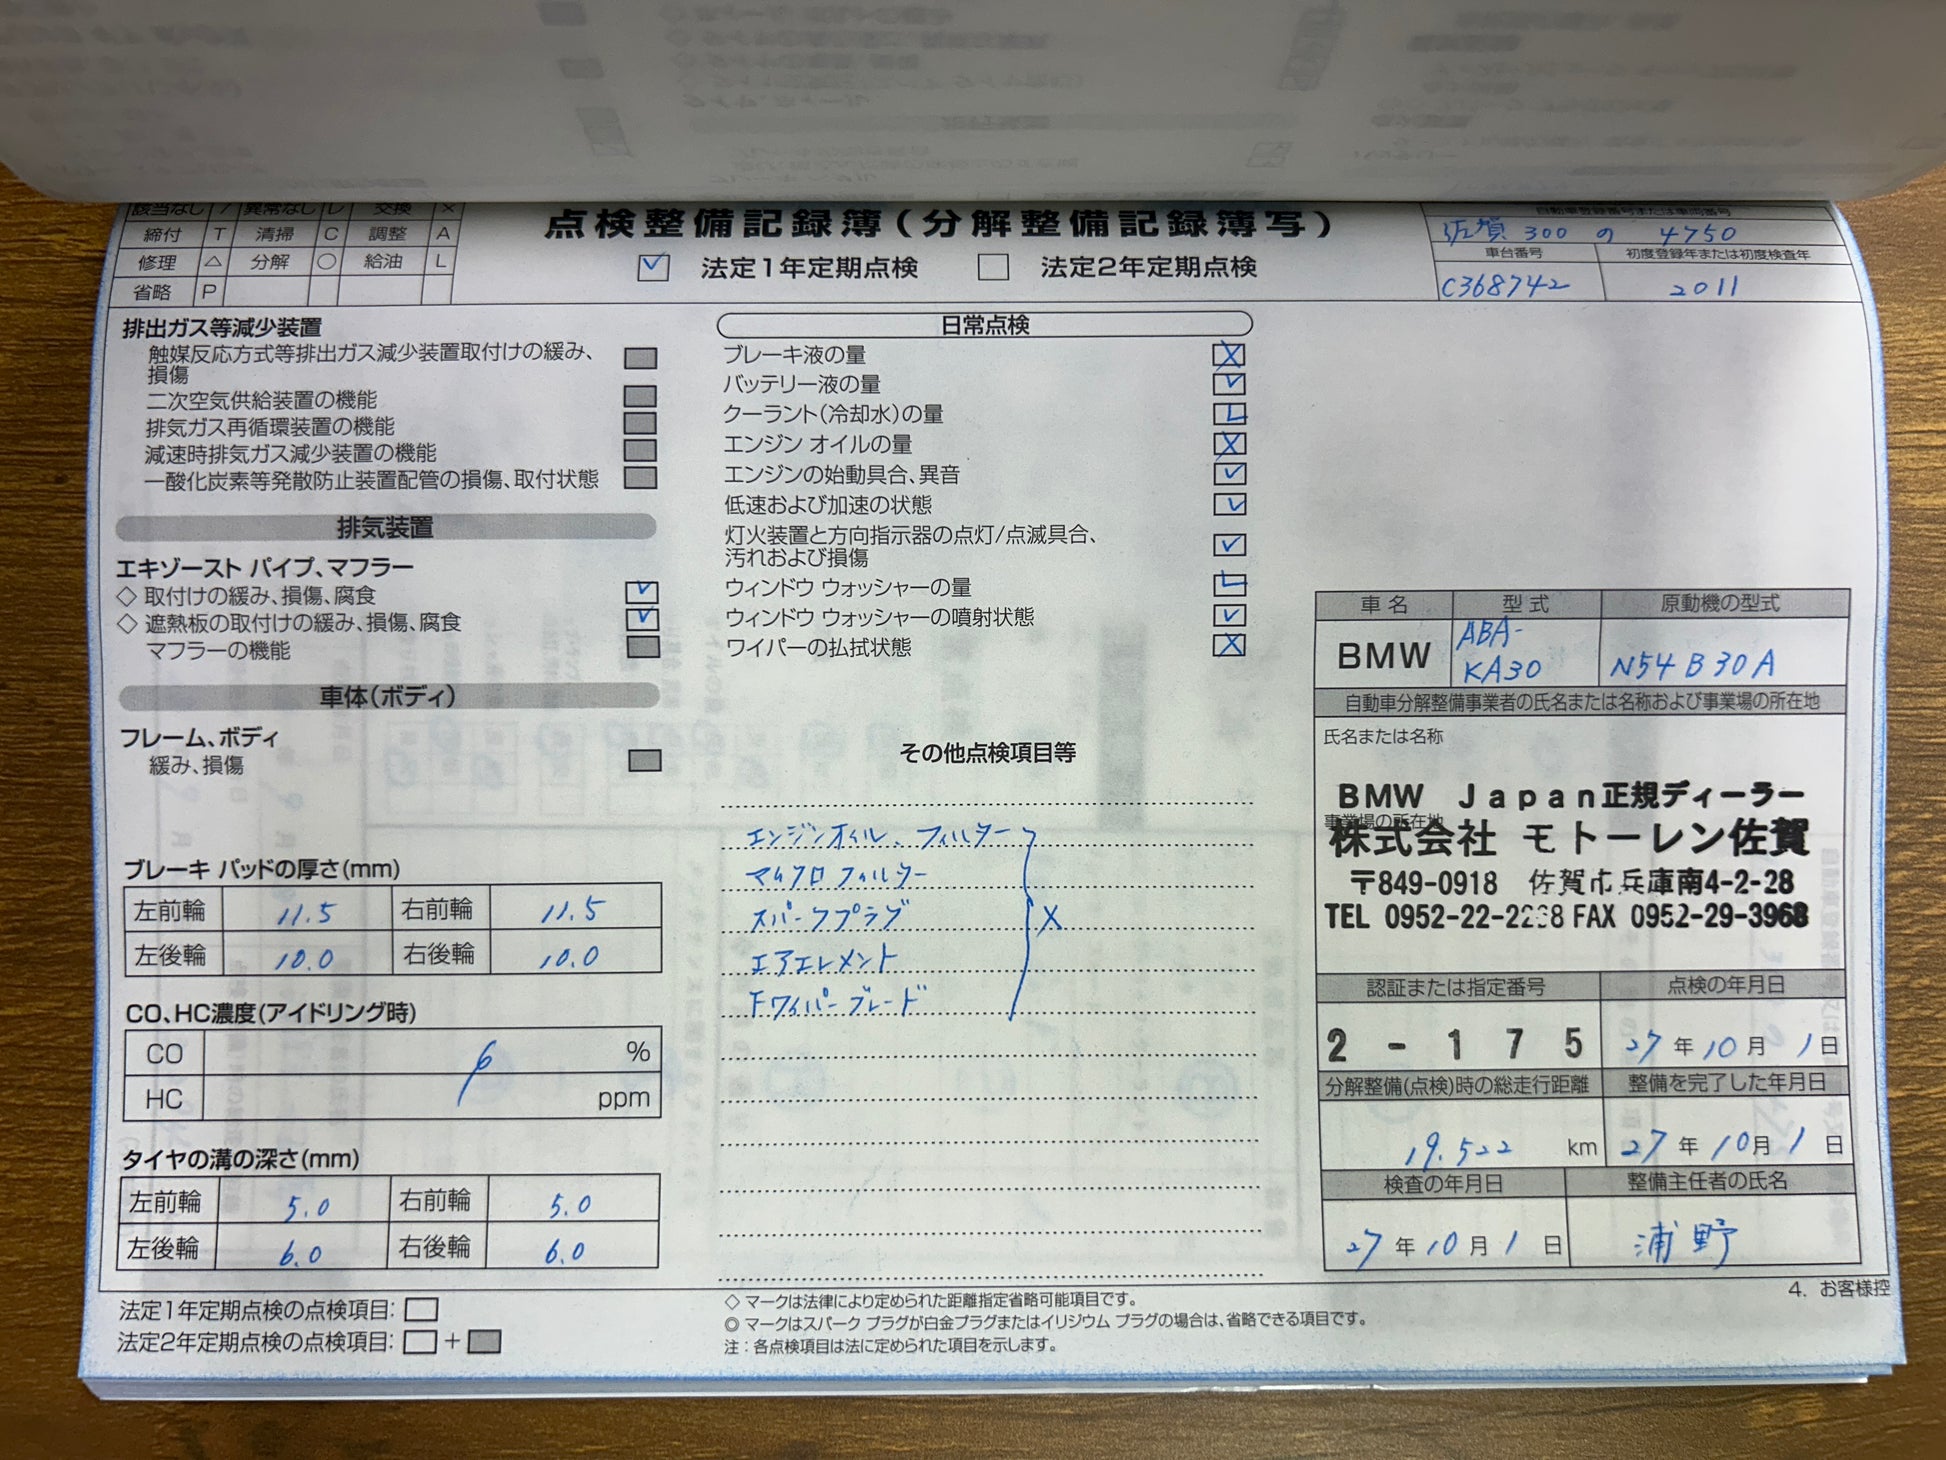 該当なし / 異常なし レ 交換 ×
締付 T 清掃 C 調整 A
修理 △ 分解 ○ 給油 L
省略 P
点検整備記録簿(分解整備記録簿写)
法定1年定期点検 法定2年定期点検
自動車登録番号または車両番号
佐賀 300 の 4750
車台番号 初度登録年または初度検査年
C368742 2011
排出ガス等減少装置
触媒反応方式等排出ガス減少装置取付けの緩み、
損傷
二次空気供給装置の機能
排気ガス再循環装置の機能
減速時排気ガス減少装置の機能
一酸化炭素等発散防止装置配管の損傷、取付状態
排気装置
エキゾースト パイプ、マフラー
◇ 取付けの緩み、損傷、腐食
◇ 遮熱板の取付けの緩み、損傷、腐食
マフラーの機能
車体(ボディ)
フレーム、ボディ
緩み、損傷
ブレーキ パッドの厚さ(mm)
左前輪 11.5 右前輪 11.5
左後輪 10.0 右後輪 10.0
CO、HC濃度(アイドリング時)
CO %
HC ppm
タイヤの溝の深さ(mm)
左前輪 5.0 右前輪 5.0
左後輪 6.0 右後輪 6.0
法定1年定期点検の点検項目:
法定2年定期点検の点検項目: +
日常点検
ブレーキ液の量 X
バッテリー液の量 レ
クーラント(冷却水)の量 L
エンジン オイルの量 X
エンジンの始動具合、異音 レ
低速および加速の状態 レ
灯火装置と方向指示器の点灯/点滅具合、
汚れおよび損傷 レ
ウィンドウ ウォッシャーの量 L
ウィンドウ ウォッシャーの噴射状態 レ
ワイパーの払拭状態 X
その他点検項目等
エンジンオイル、フィルター
マイクロフィルター
スパークプラグ X
エアエレメント
Fワイパーブレード
◇ マークは法律により定められた距離指定省略可能項目です。
◎ マークはスパーク プラグが白金プラグまたはイリジウム プラグの場合は、省略できる項目です。
注:各点検項目は法に定められた項目を示します。
車名 型式 原動機の型式
BMW ABA-
KA30 N54B30A
自動車分解整備事業者の氏名または名称および事業場の所在地
氏名または名称
BMW Japan正規ディーラー
事業場の所在地
株式会社 モトーレン佐賀
〒849-0918 佐賀市兵庫南4-2-28
TEL 0952-22-2268 FAX 0952-29-3968
認証または指定番号 点検の年月日
2-175 27年10月1日
分解整備(点検)時の総走行距離 整備を完了した年月日
19.522 km 27年10月1日
検査の年月日 整備主任者の氏名
27年10月1日 浦野
4. お客様控